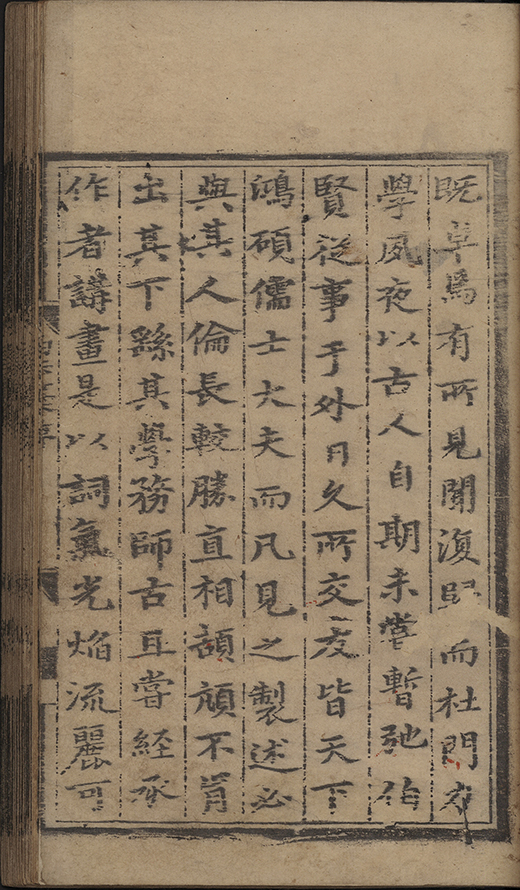 既卓爲有所見聞復歸而杜門力
學夙夜以古人自期未嘗暫弛伯
賢從事于外日久所交友皆天下
鴻碩儒士大夫而凡見之製述必
與其人倫長較勝直相頡頏不肯
出其下繇其學務師古且嘗經承
作者講畫是以詞氣光焰流麗可